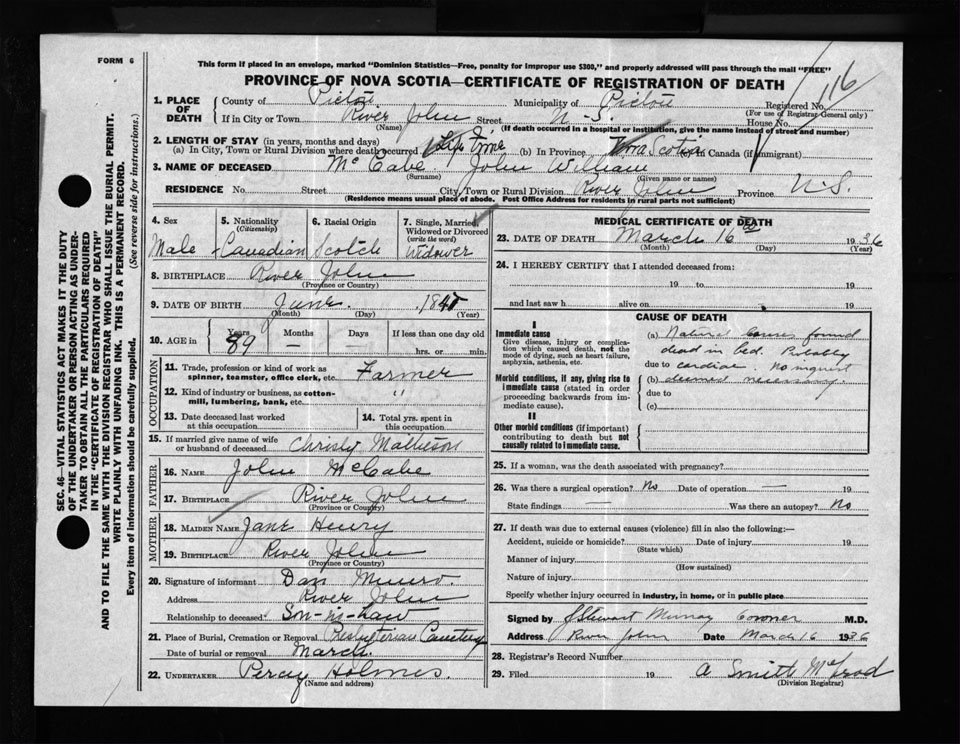 FORM 6
This form if placed in an envelope, marked "Dominion Statistics—Free, penalty for improper use $300," and properly addressed will pass through the mail "FREE"
PROVINCE OF NOVA SCOTIA—CERTIFICATE OF REGISTRATION OF DEATH
116
1. PLACE OF DEATH
County of Pictou Municipality of Pictou Registered No.
(For use of Registrar-General only)
If in City or Town River John Street N-S. House No.
(Name) (If death occurred in a hospital or institution, give the name instead of street and number)
2. LENGTH OF STAY (in years, months and days)
(a) In City, Town or Rural Division where death occurred Life Time (b) In Province Nova Scotia Canada (if immigrant)
3. NAME OF DECEASED McCabe John William
(Surname) (Given name or names)
RESIDENCE No. Street City, Town or Rural Division River John Province N.S.
(Residence means usual place of abode. Post Office Address for residents in rural parts not sufficient)
4. Sex 5. Nationality (Citizenship) 6. Racial Origin 7. Single, Married Widowed or Divorced (write the word)
Male Canadian Scotch Widower
8. BIRTHPLACE River John
(Province or Country)
9. DATE OF BIRTH June 184
(Month) (Day) (Year)
10. AGE in Years Months Days If less than one day old
89 — hrs. or min.
OCCUPATION
11. Trade, profession or kind of work as spinner, teamster, office clerk, etc. Farmer
12. Kind of industry or business, as cotton-mill, lumbering, bank, etc. "
13. Date deceased last worked at this occupation 14. Total yrs. spent in this occupation
15. If married give name of wife or husband of deceased Christy Matheson
FATHER
16. NAME John McCabe
17. BIRTHPLACE River John
(Province or Country)
MOTHER
18. MAIDEN NAME Jane Henry
19. BIRTHPLACE River John
(Province or Country)
20. Signature of informant Dan Munro.
Address River John
Relationship to deceased Son-in-Law
21. Place of Burial, Cremation or Removal Presbyterian Cemetery
Date of burial or removal March.
22. UNDERTAKER Percy Holmes.
(Name and address)
MEDICAL CERTIFICATE OF DEATH
23. DATE OF DEATH March 16th 1936
(Month) (Day) (Year)
24. I HEREBY CERTIFY that I attended deceased from:
19 to 19
and last saw h alive on 19
CAUSE OF DEATH
I
Immediate cause
Give disease, injury or complication which caused death, not the mode of dying, such as heart failure, asphyxia, asthenia, etc.
(a) Natural causes found
dead in bed. Probably
due to cardiac. No inquest
Morbid conditions, if any, giving rise to immediate cause (stated in order proceeding backwards from immediate cause).
(b) deemed necessary.
due to
(c)
II
Other morbid conditions (if important) contributing to death but not causally related to immediate cause.
25. If a woman, was the death associated with pregnancy?
26. Was there a surgical operation? No Date of operation — 19
State findings Was there an autopsy? No
27. If death was due to external causes (violence) fill in also the following:—
Accident, suicide or homicide? Date of injury 19
(State which)
Manner of injury
(How sustained)
Nature of injury
Specify whether injury occurred in industry, in home, or in public place
Signed by J Stewart Murray Coroner M.D.
Address River John Date March 16 1936
28. Registrar's Record Number
29. Filed 19 A Smith
(Division Registrar)
SEC. 46—VITAL STATISTICS ACT MAKES IT THE DUTY
OF THE UNDERTAKER OR PERSON ACTING AS UNDER-
TAKER TO OBTAIN ALL THE PARTICULARS REQUIRED
IN THE "CERTIFICATE OF REGISTRATION OF DEATH"
AND TO FILE THE SAME WITH THE DIVISION REGISTRAR WHO SHALL ISSUE THE BURIAL PERMIT.
WRITE PLAINLY WITH UNFADING INK. THIS IS A PERMANENT RECORD.
Every item of information should be carefully supplied. (See reverse side for instructions.)